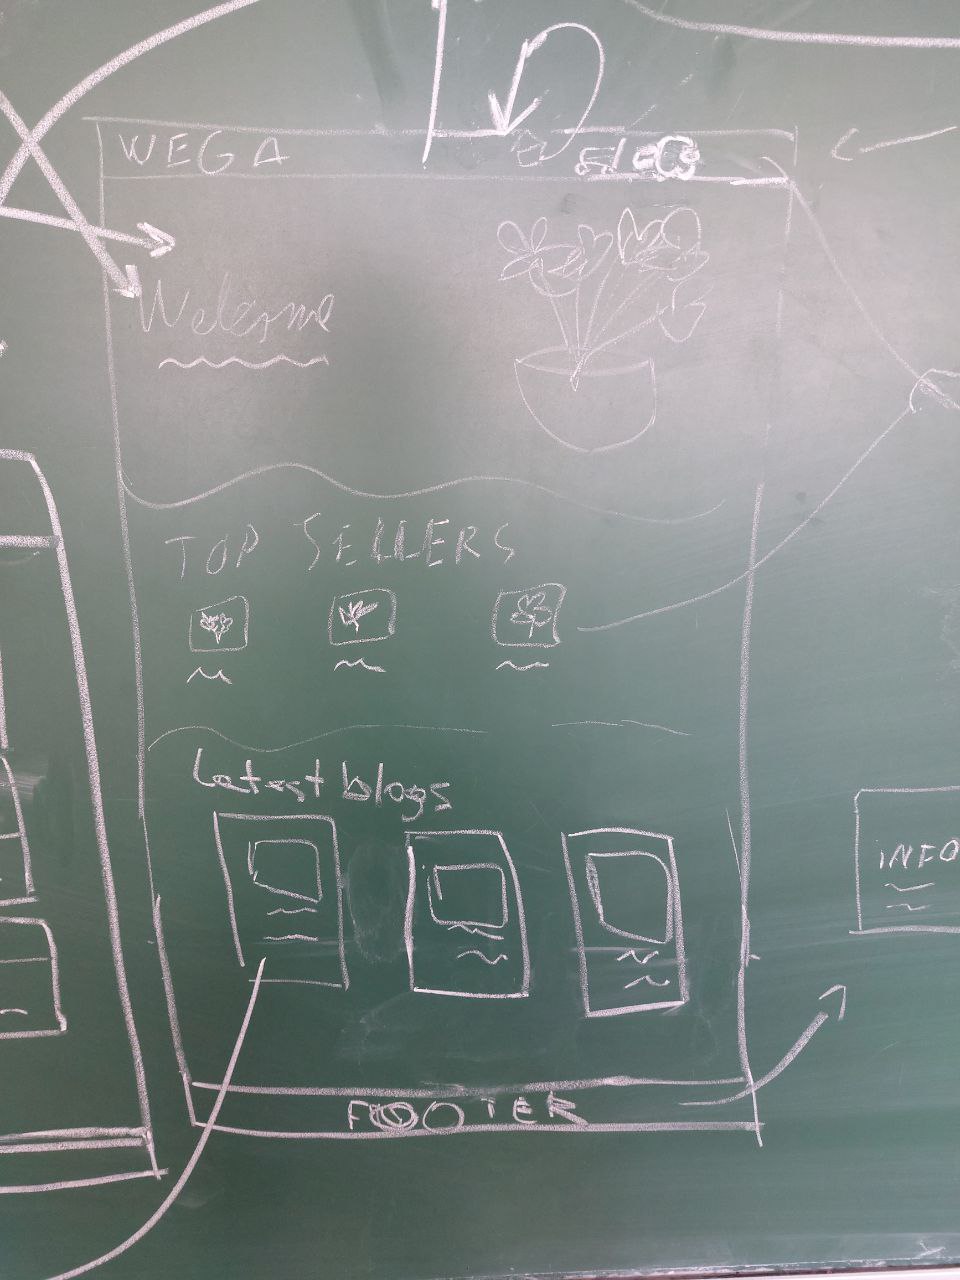 WEGA
Welcome
TOP SELLERS
Latest blogs
INFO
FOOTER